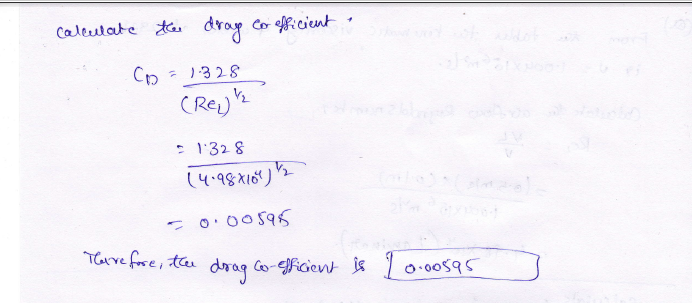 calculate the drag co efficient .
C_D = 1.328 / (Re_L)^1/2
= 1.328 / (4.98×10^4)^1/2
= 0.00595
Therefore, the drag co-efficient is 0.00595